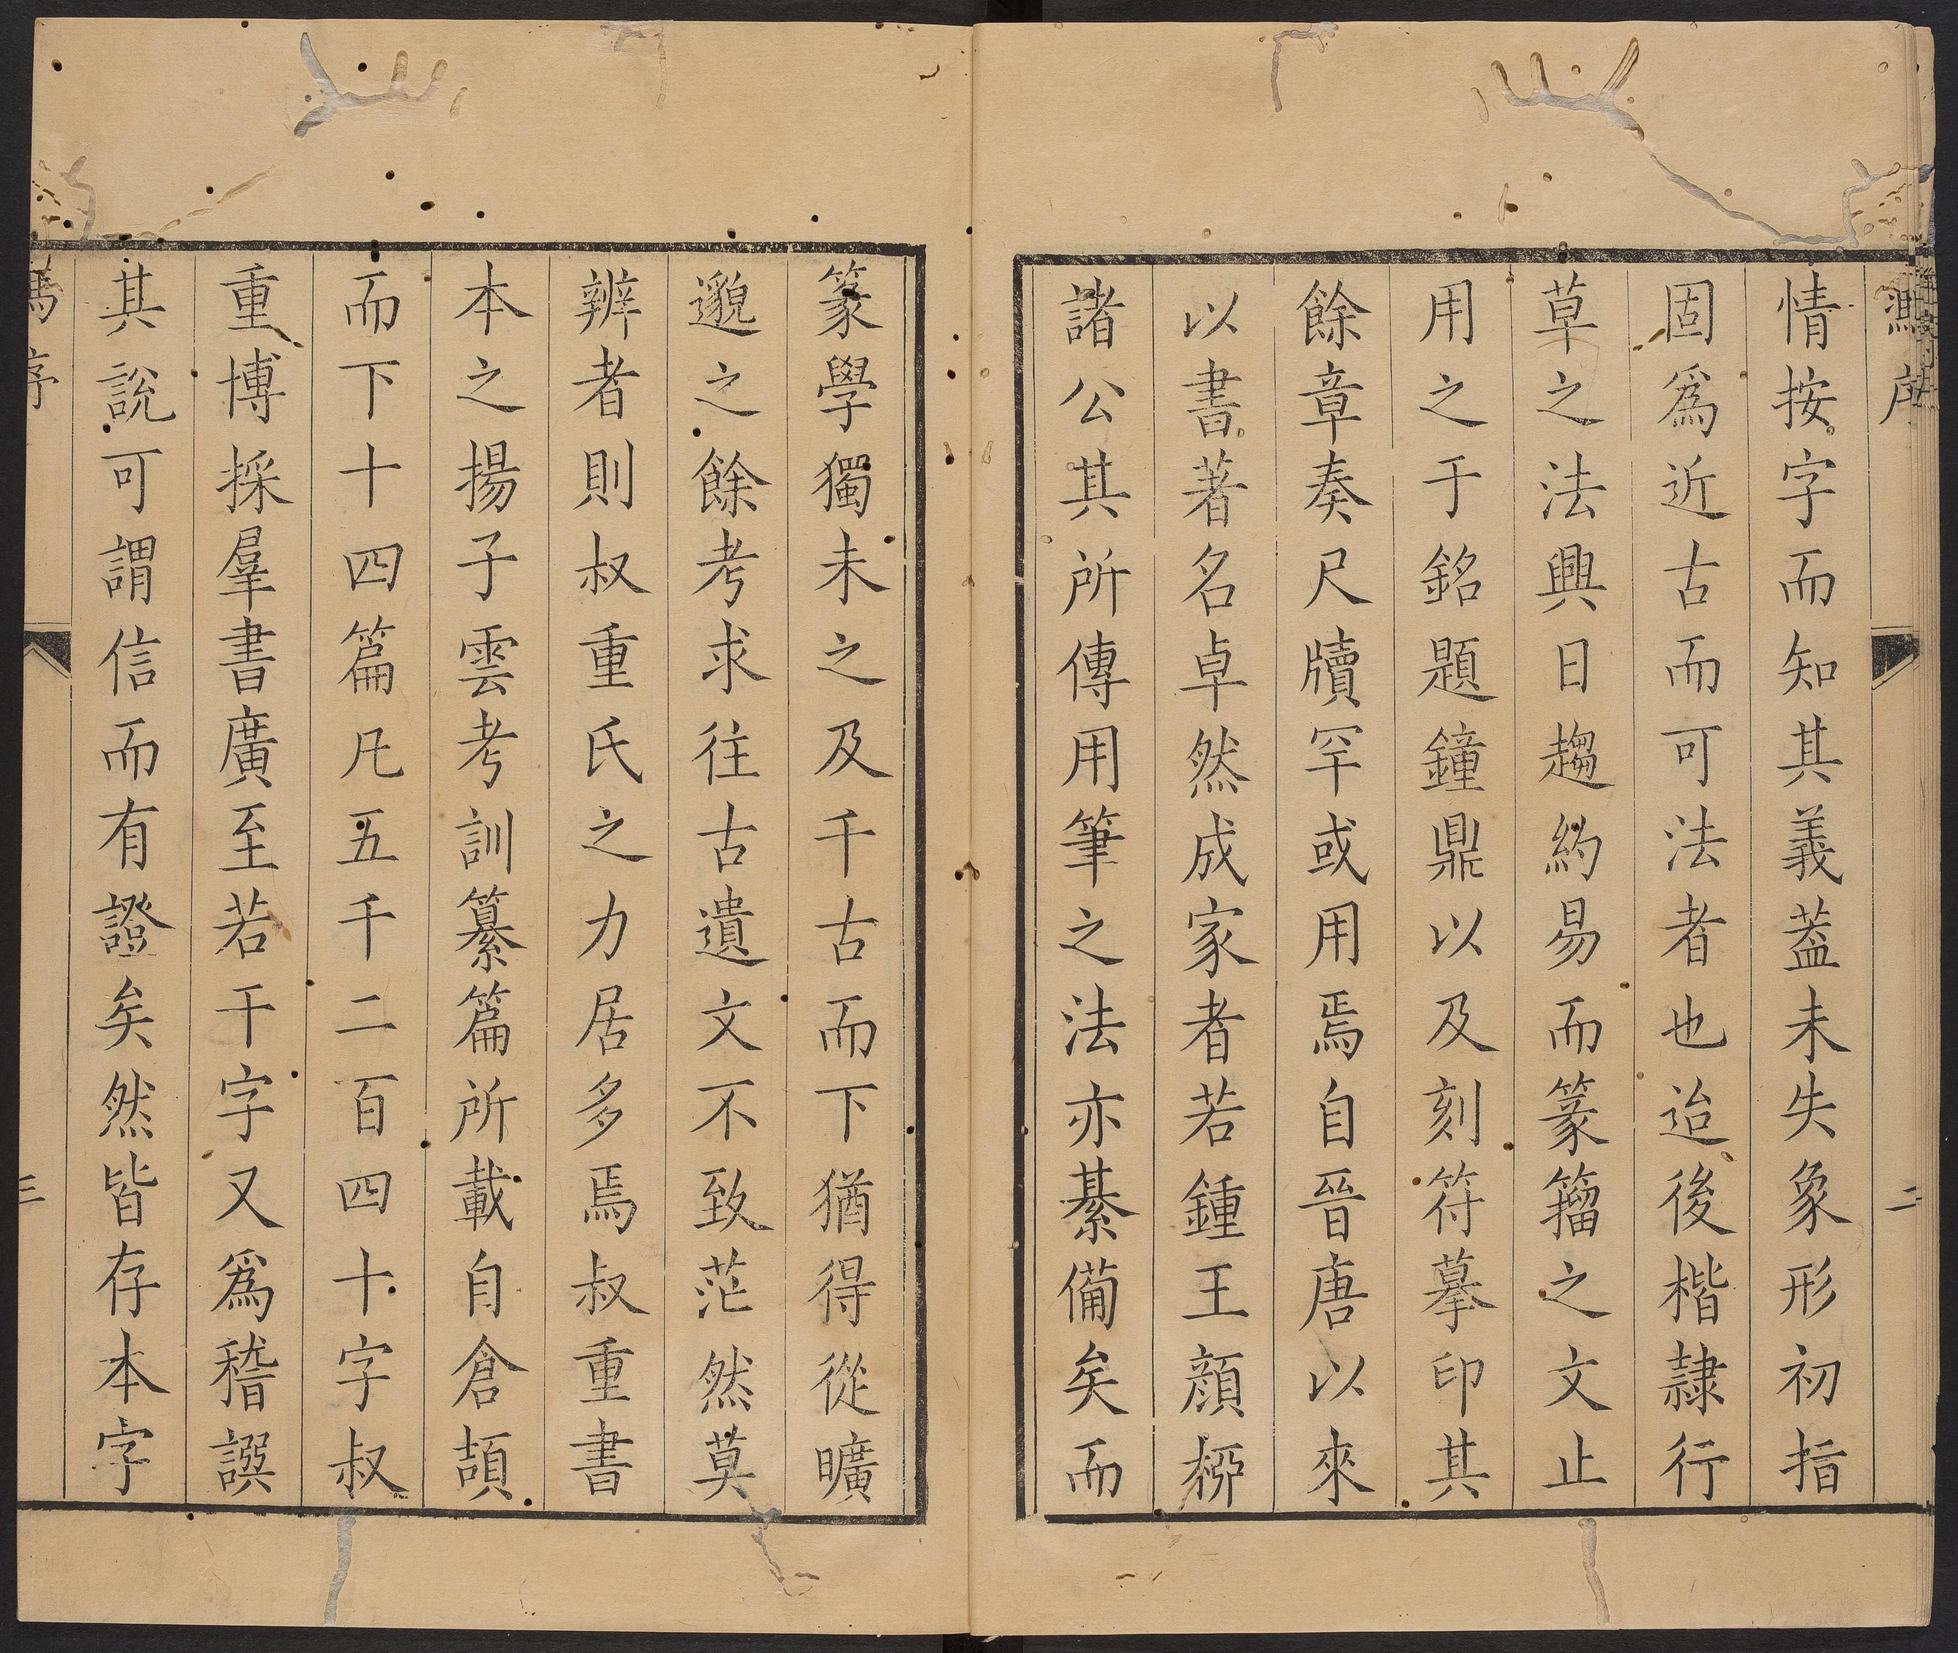 情按字而知其義葢未失象形初指
固爲近古而可法者也迨後楷隷行
草之法興日趨約易而篆籀之文止
用之于銘題鐘鼎以及刻符摹印其
餘章奏尺牘罕或用焉自晉唐以來
以書著名卓然成家者若鍾王顔桺
諸公其所傳用筆之法亦綦備矣而
篆學獨未之及千古而下猶得從曠
邈之餘考求往古遺文不致茫然莫
辨者則叔重氏之力居多焉叔重書
本之揚子雲考訓纂篇所載自倉頡
而下十四篇凡五千二百四十字叔
重博採羣書廣至若干字又爲稽譔
其説可謂信而有證矣然皆存本字
馮序
三
二